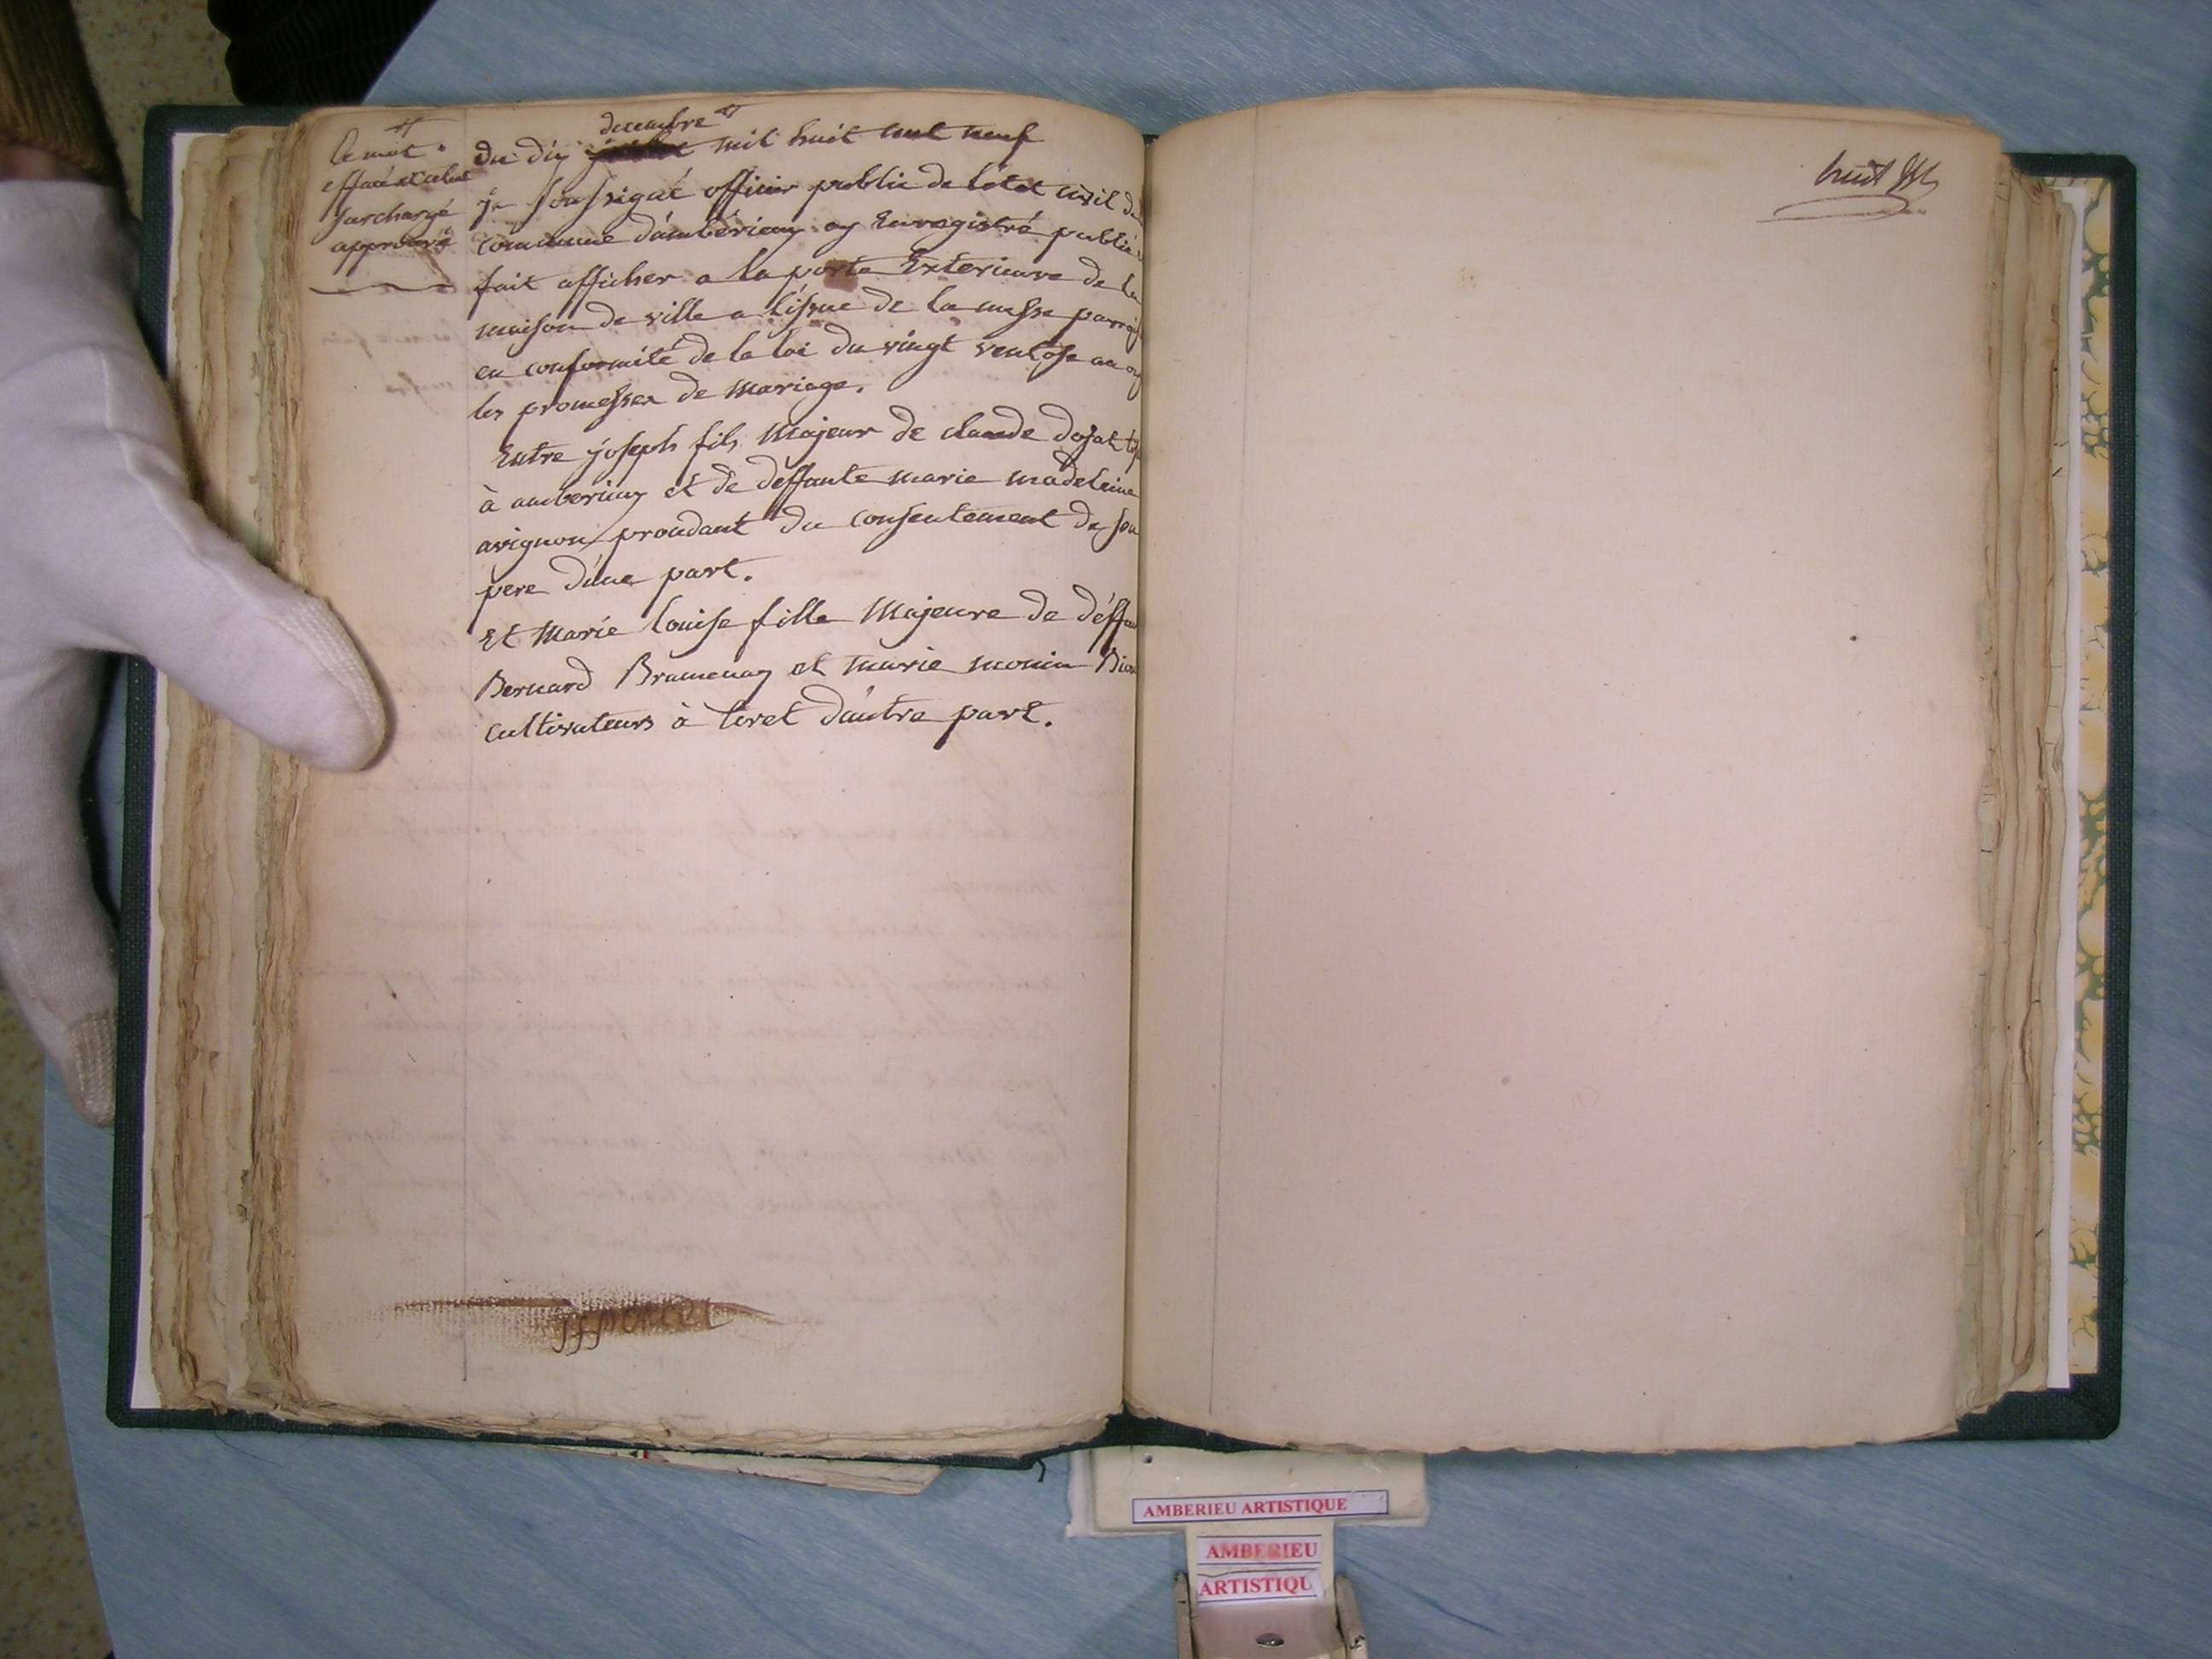 le mot
effacé et celui
surchargé
approuvé
decembre
du dix mil huit cent neuf
je soussigné officier public de l'état civil de
commune d'ambérieux ay Enregistré publié
fait afficher a la porte Exterieure de la
maison de ville a l'issue de la messe
en conformité de la loi du vingt ventose an
les promesses de Mariage.
Entre joseph fils Majeur de claude
à amberieux et de deffunte marie madeleine
avignon proudant du consentement de son
pere d'une part.
Et Marie louise fille Majeure de
Bernard Bramenay et marie monin
cultivateurs à toret d'autre part.
huit
AMBERIEU ARTISTIQUE
AMBERIEU
ARTISTIQU